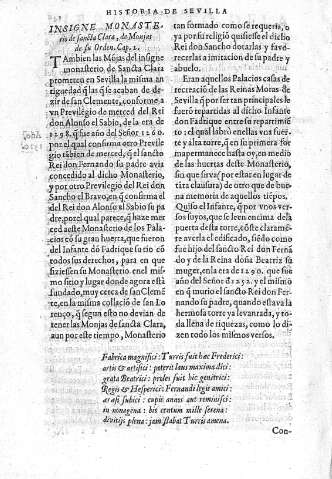 HISTORIA DE SEVILLA
INSIGNE MONASTE-
rio de sancta Clara, de Monjas
de su Orden. Cap. 2.
TAmbien las Mōjas del insigne
monasterio, de Sancta Clara
prometen en Sevilla la misma an
tiguedad q̄ las q̄ se acaban de de-
zir de san Clemente, conforme a
vn Previlegio de merced del Rei
don Alonso el Sabio, de la era de
1298. q̄ fue año del Señor 1260.
por el qual confirma otro Previle
gio tābien de merced, q̄ el sancto
Rei don Fernando su padre avia
concedido al dicho Monasterio,
y por otro Previlegio del Rei don
Sancho el Bravo, en q̄ confirma el
del Rei don Alonso el Sabio su pa
dre, por el qual parece, q̄ haze mer
ced aeste Monasterio de los Pala-
cios cō su gran huerta, que fueron
del Infante dō Fadrique su tio cō
todos sus derechos, para en que
hiziessen su Monasterio en el mis
mo sitio y lugar donde agora està
fundado, muy cerca de san Clemē
te, en la misma collaciō de san Lo
renço, q̄ segun esto no devian de
tener las Monjas de sancta Clara,
aun por este tiempo, Monasterio
tan formado como se requeria, o
ya por su religiō quisiesse el dicho
Rei don Sancho dotarlas y favo-
recerlas a imitacion de su padre y
abuelo.
Eran aquellos Palacios casas de
recreaciō de las Reinas Moras de
Sevilla q̄ por ser tan principales le
fuerō repartidas al dicho Infante
don Fadrique entre su repartimiē
to: el qual labrò en ellas vna fuer-
te y alta torre, q̄ en su primera for
ma permanece hasta oy, en medio
de las huertas deste Monasterio,
sin que sirva (por estar en lugar de
tāta clausura) de otro que de bue-
na memoria de aquellos tiēpos.
Quiso el Infante, q̄ por vnos ver-
sos suyos, que se leen encima de la
puerta desta torre, cōste claramē-
te averla el edificado, siēdo como
fue hijo del sancto Rei don Fernā-
do y de la Reina doña Beatriz su
muger, en la era de 1290. que fue
año del Señor de 1252. y el mismo
en q̄ murio el sancto Rei don Fer
nando su padre, quando estava la
hermosa torre ya levantada, y to-
da llena de riquezas, como lo di-
zen todo los mismos versos.
Fabrica magnifici: Turris fuit hæc Frederici:
artis & artifici: poterit laus maxima dici:
grata Beatrici: proles fuit hic genitrici:
Regis & Hesperici: Fernandi legis amici:
ærasi subici: cupis annos aut reminisci:
in nonagena: bis centum mille serena:
divitijs plena: jam stabat Turris amena.
Con-